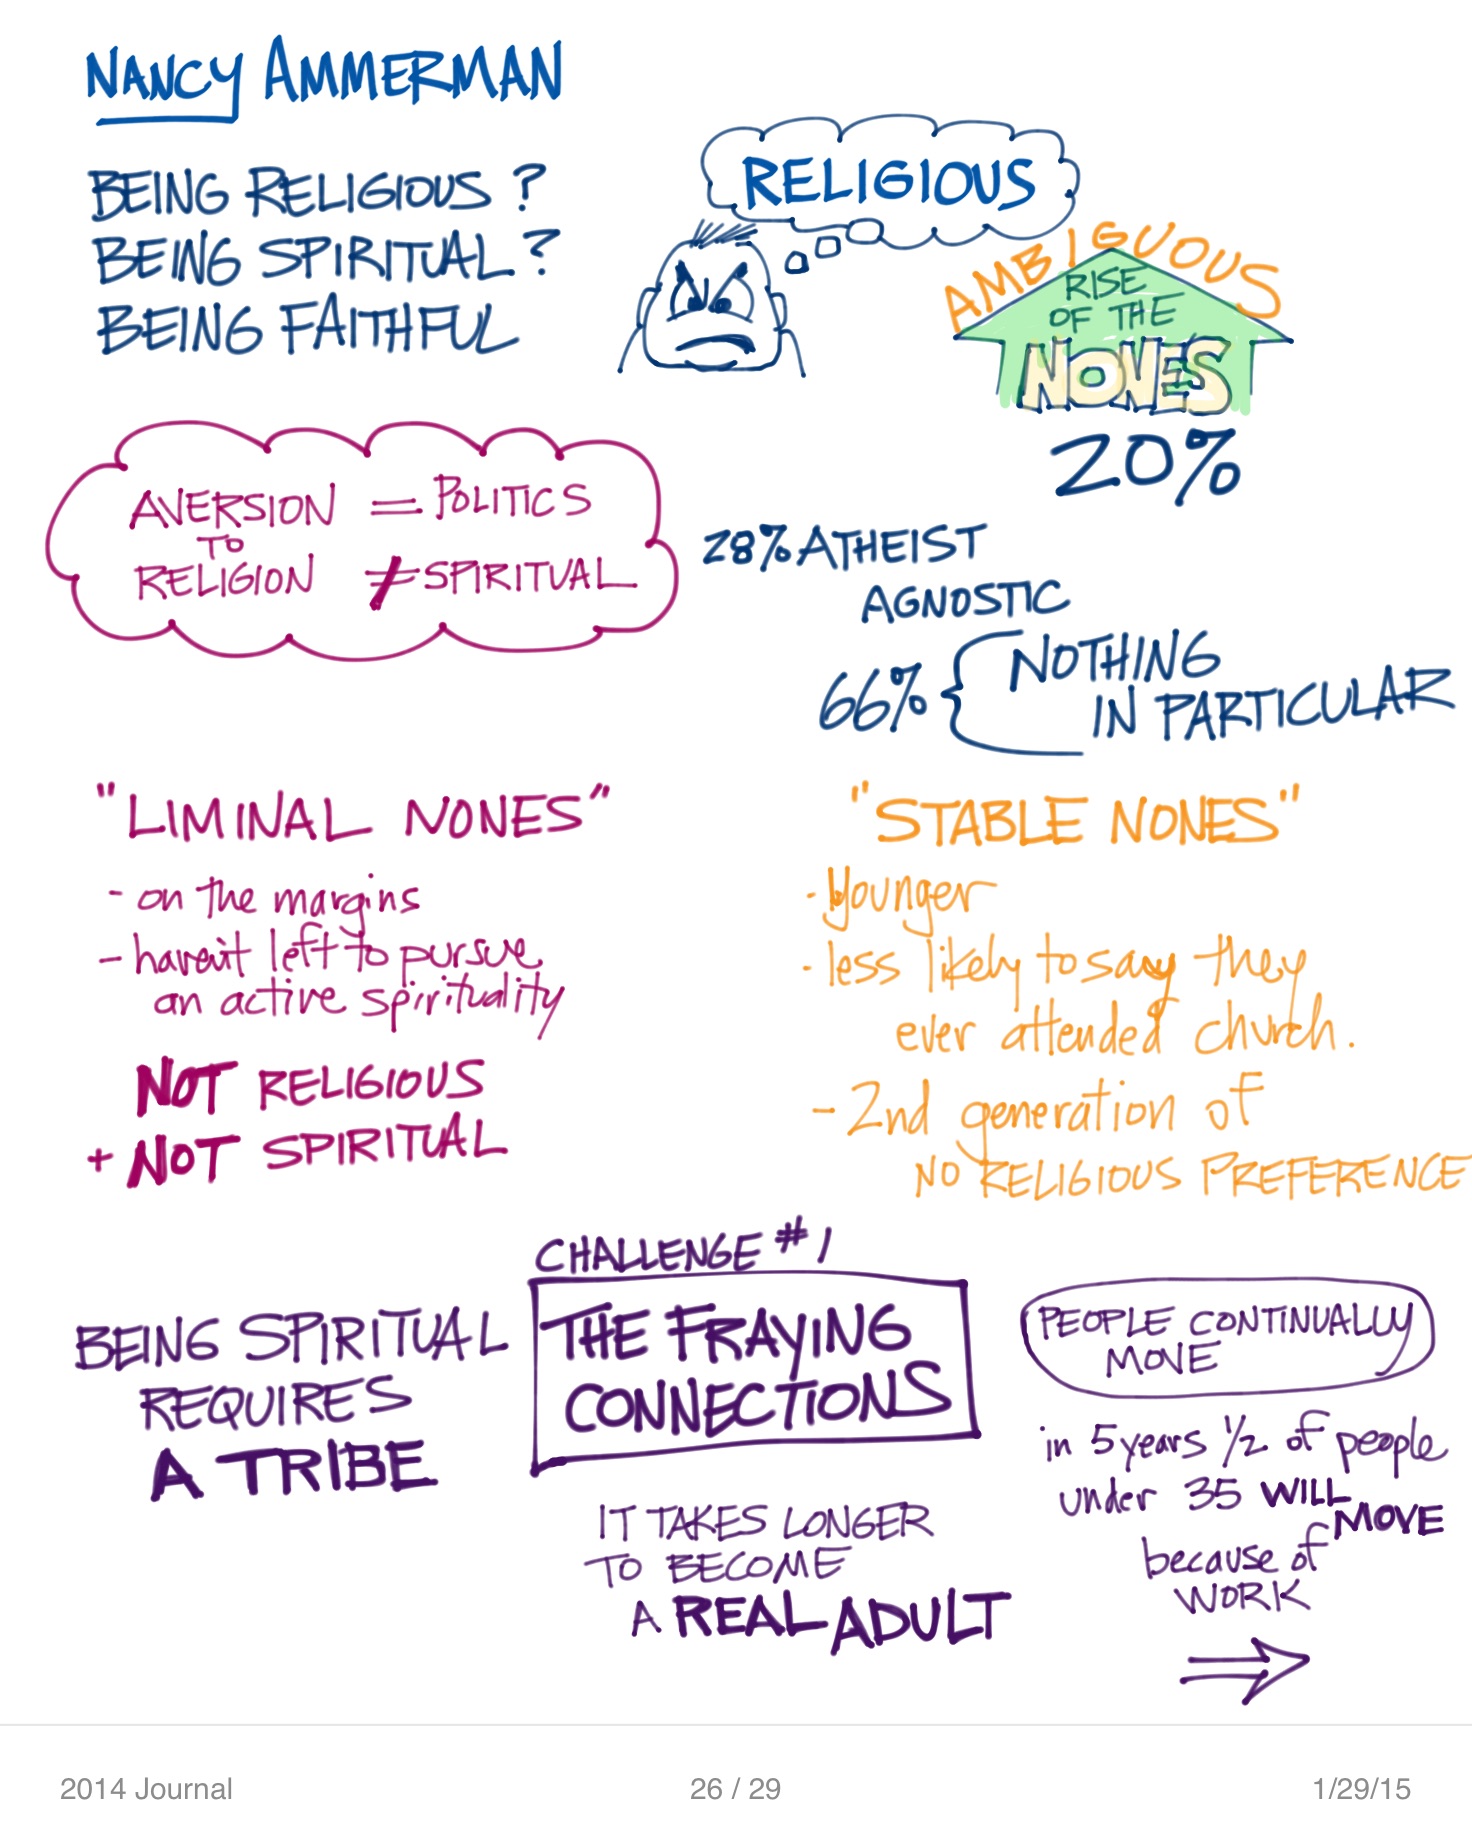 NANCY AMMERMAN
BEING RELIGIOUS ?
BEING SPIRITUAL ?
BEING FAITHFUL
RELIGIOUS
AMBIGUOUS
RISE
OF THE
NONES
20%
AVERSION = POLITICS
TO
RELIGION ≠ SPIRITUAL
28% ATHEIST
AGNOSTIC
66% { NOTHING
IN PARTICULAR
"LIMINAL NONES"
- on the margins
- haven't left to pursue
an active spirituality
NOT RELIGIOUS
+ NOT SPIRITUAL
"STABLE NONES"
- Younger
- less likely to say they
ever attended church.
- 2nd generation of
NO RELIGIOUS PREFERENCE
BEING SPIRITUAL
REQUIRES
A TRIBE
CHALLENGE #1
THE FRAYING
CONNECTIONS
IT TAKES LONGER
TO BECOME
A REAL ADULT
PEOPLE CONTINUALLY
MOVE
in 5 years 1/2 of people
under 35 WILL
MOVE
because of
WORK
2014 Journal
26 / 29
1/29/15